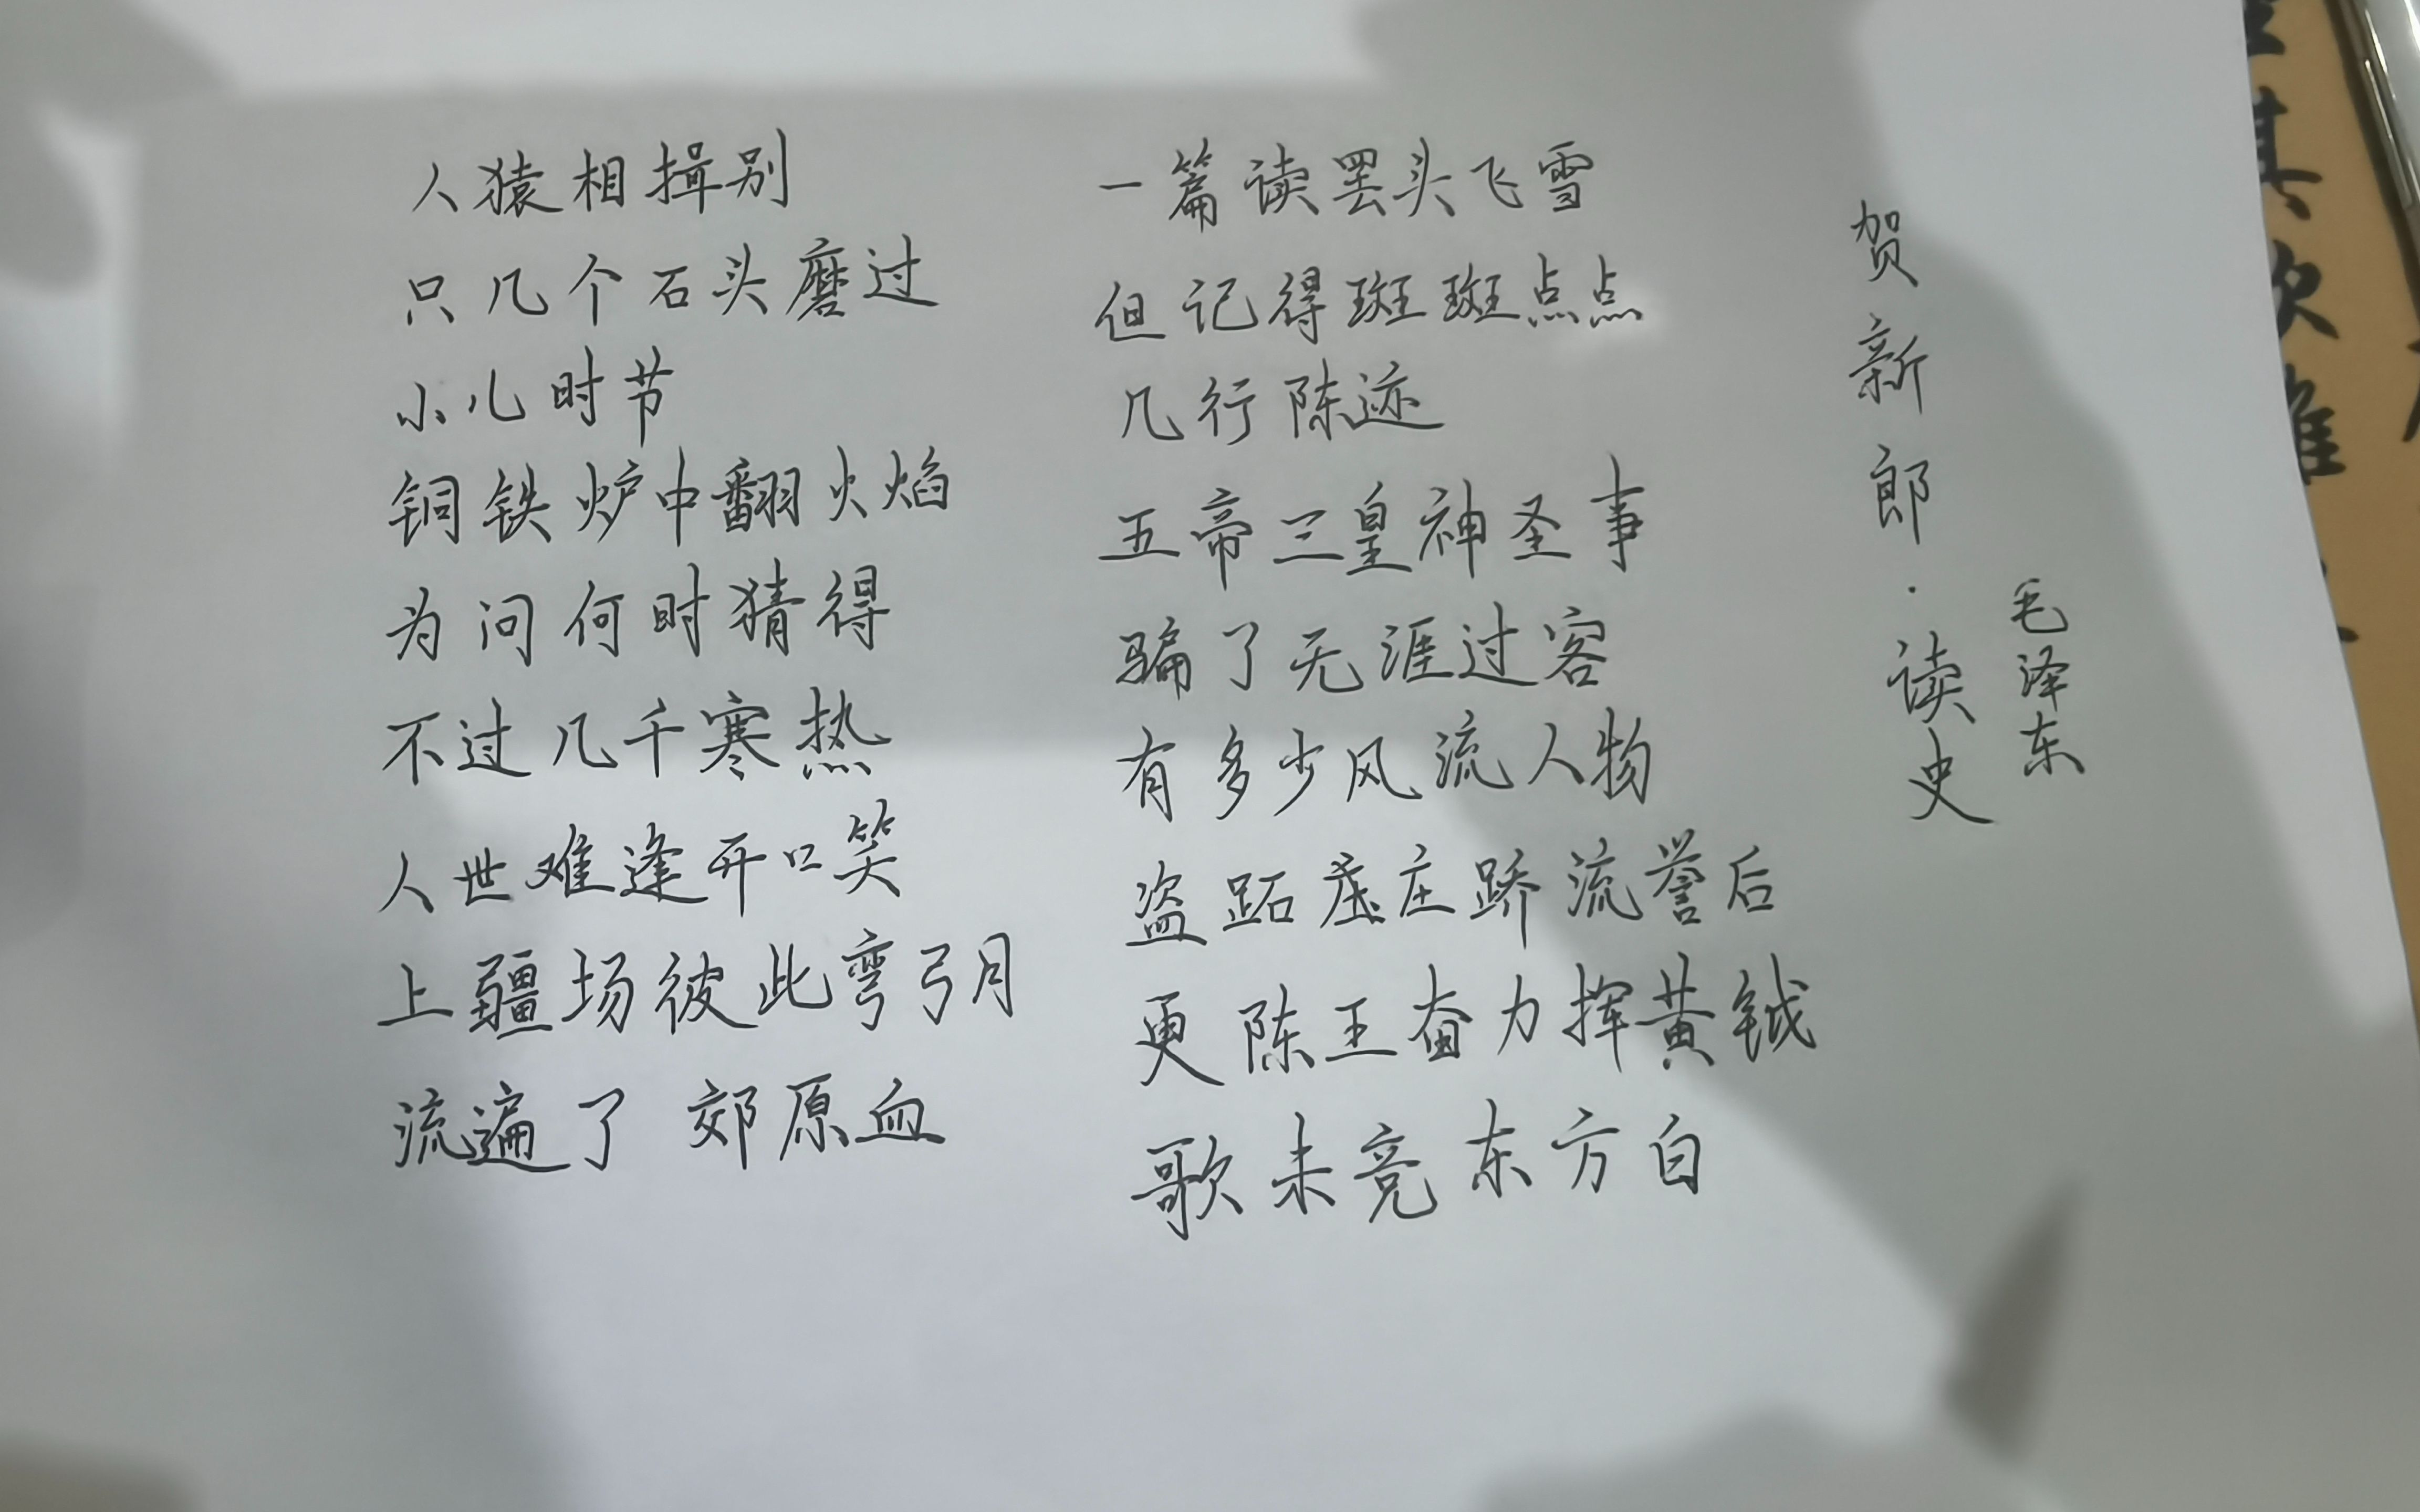 人猿相揖别
只几个石头磨过
小儿时节
铜铁炉中翻火焰
为问何时猜得
不过几千寒热
人世难逢开口笑
上疆场彼此弯弓月
流遍了 郊原血
一篇读罢头飞雪
但记得斑斑点点
几行陈迹
五帝三皇神圣事
骗了无涯过客
有多少风流人物
盗跖庄蹻流誉后
更陈王奋力挥黄钺
歌未竟东方白
贺新郎·读史
毛泽东